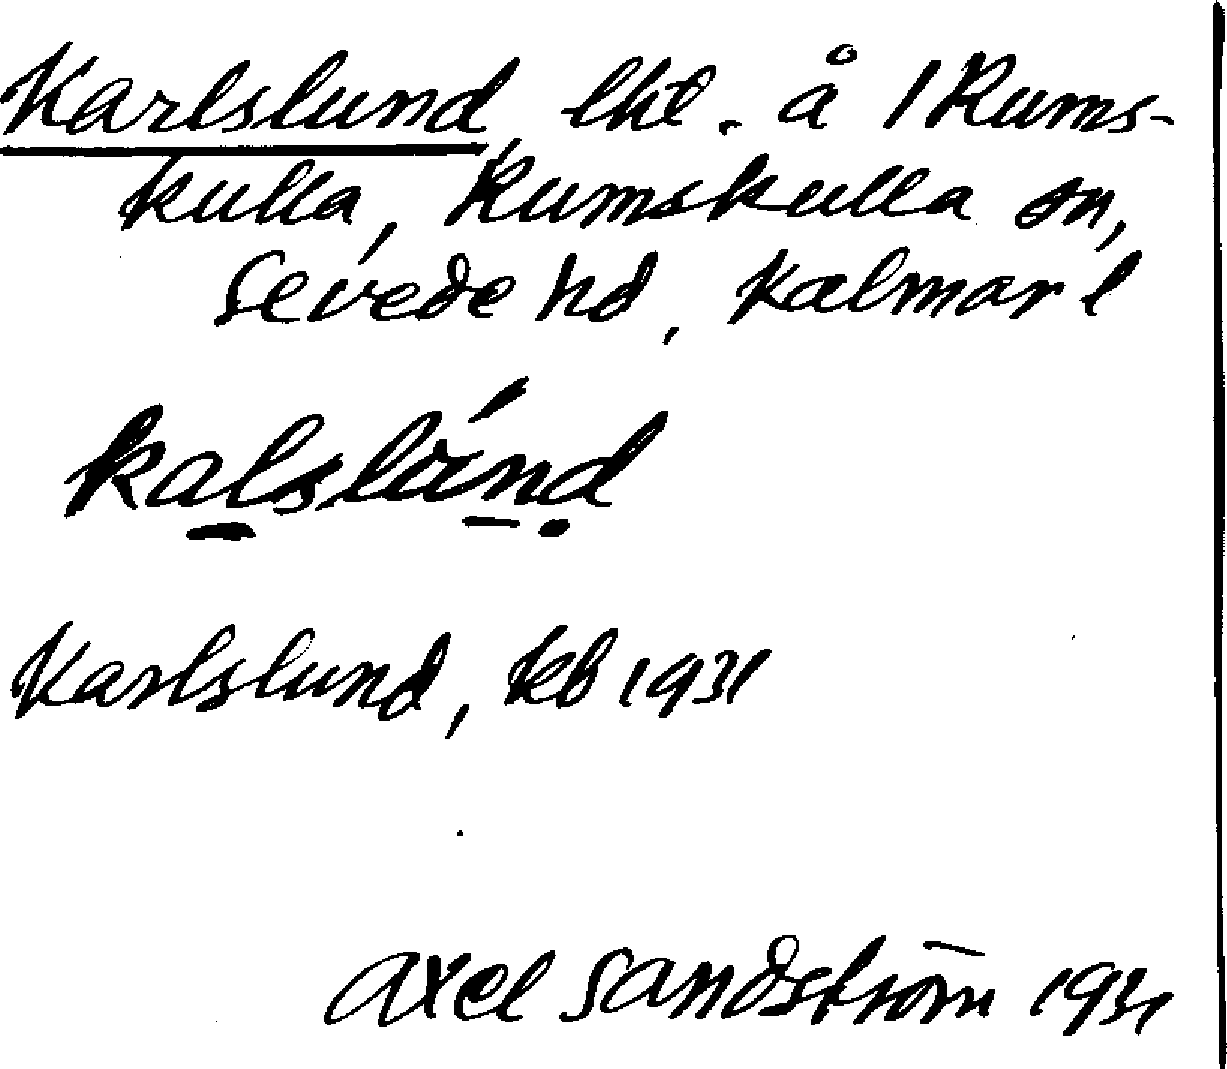 Karlslund, lht. å 1 Rums-
kulla, Rumskulla sn,
Sevede hd, Kalmar l
kalslánd
Karlslund, kb 1931
Axel Sandström 1931